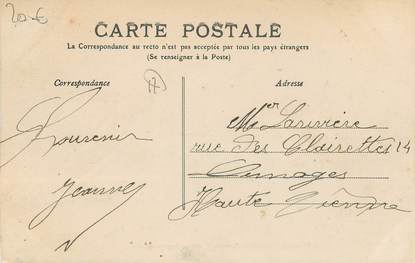 20.€
CARTE POSTALE
La Correspondance au recto n'est pas acceptée par tous les pays étrangers
(Se renseigner à la Poste)
Correspondance
Adresse
Souvenir
Jeanne
Mer Larivière
rue des Clairettes 14
Limoges
Haute Vienne